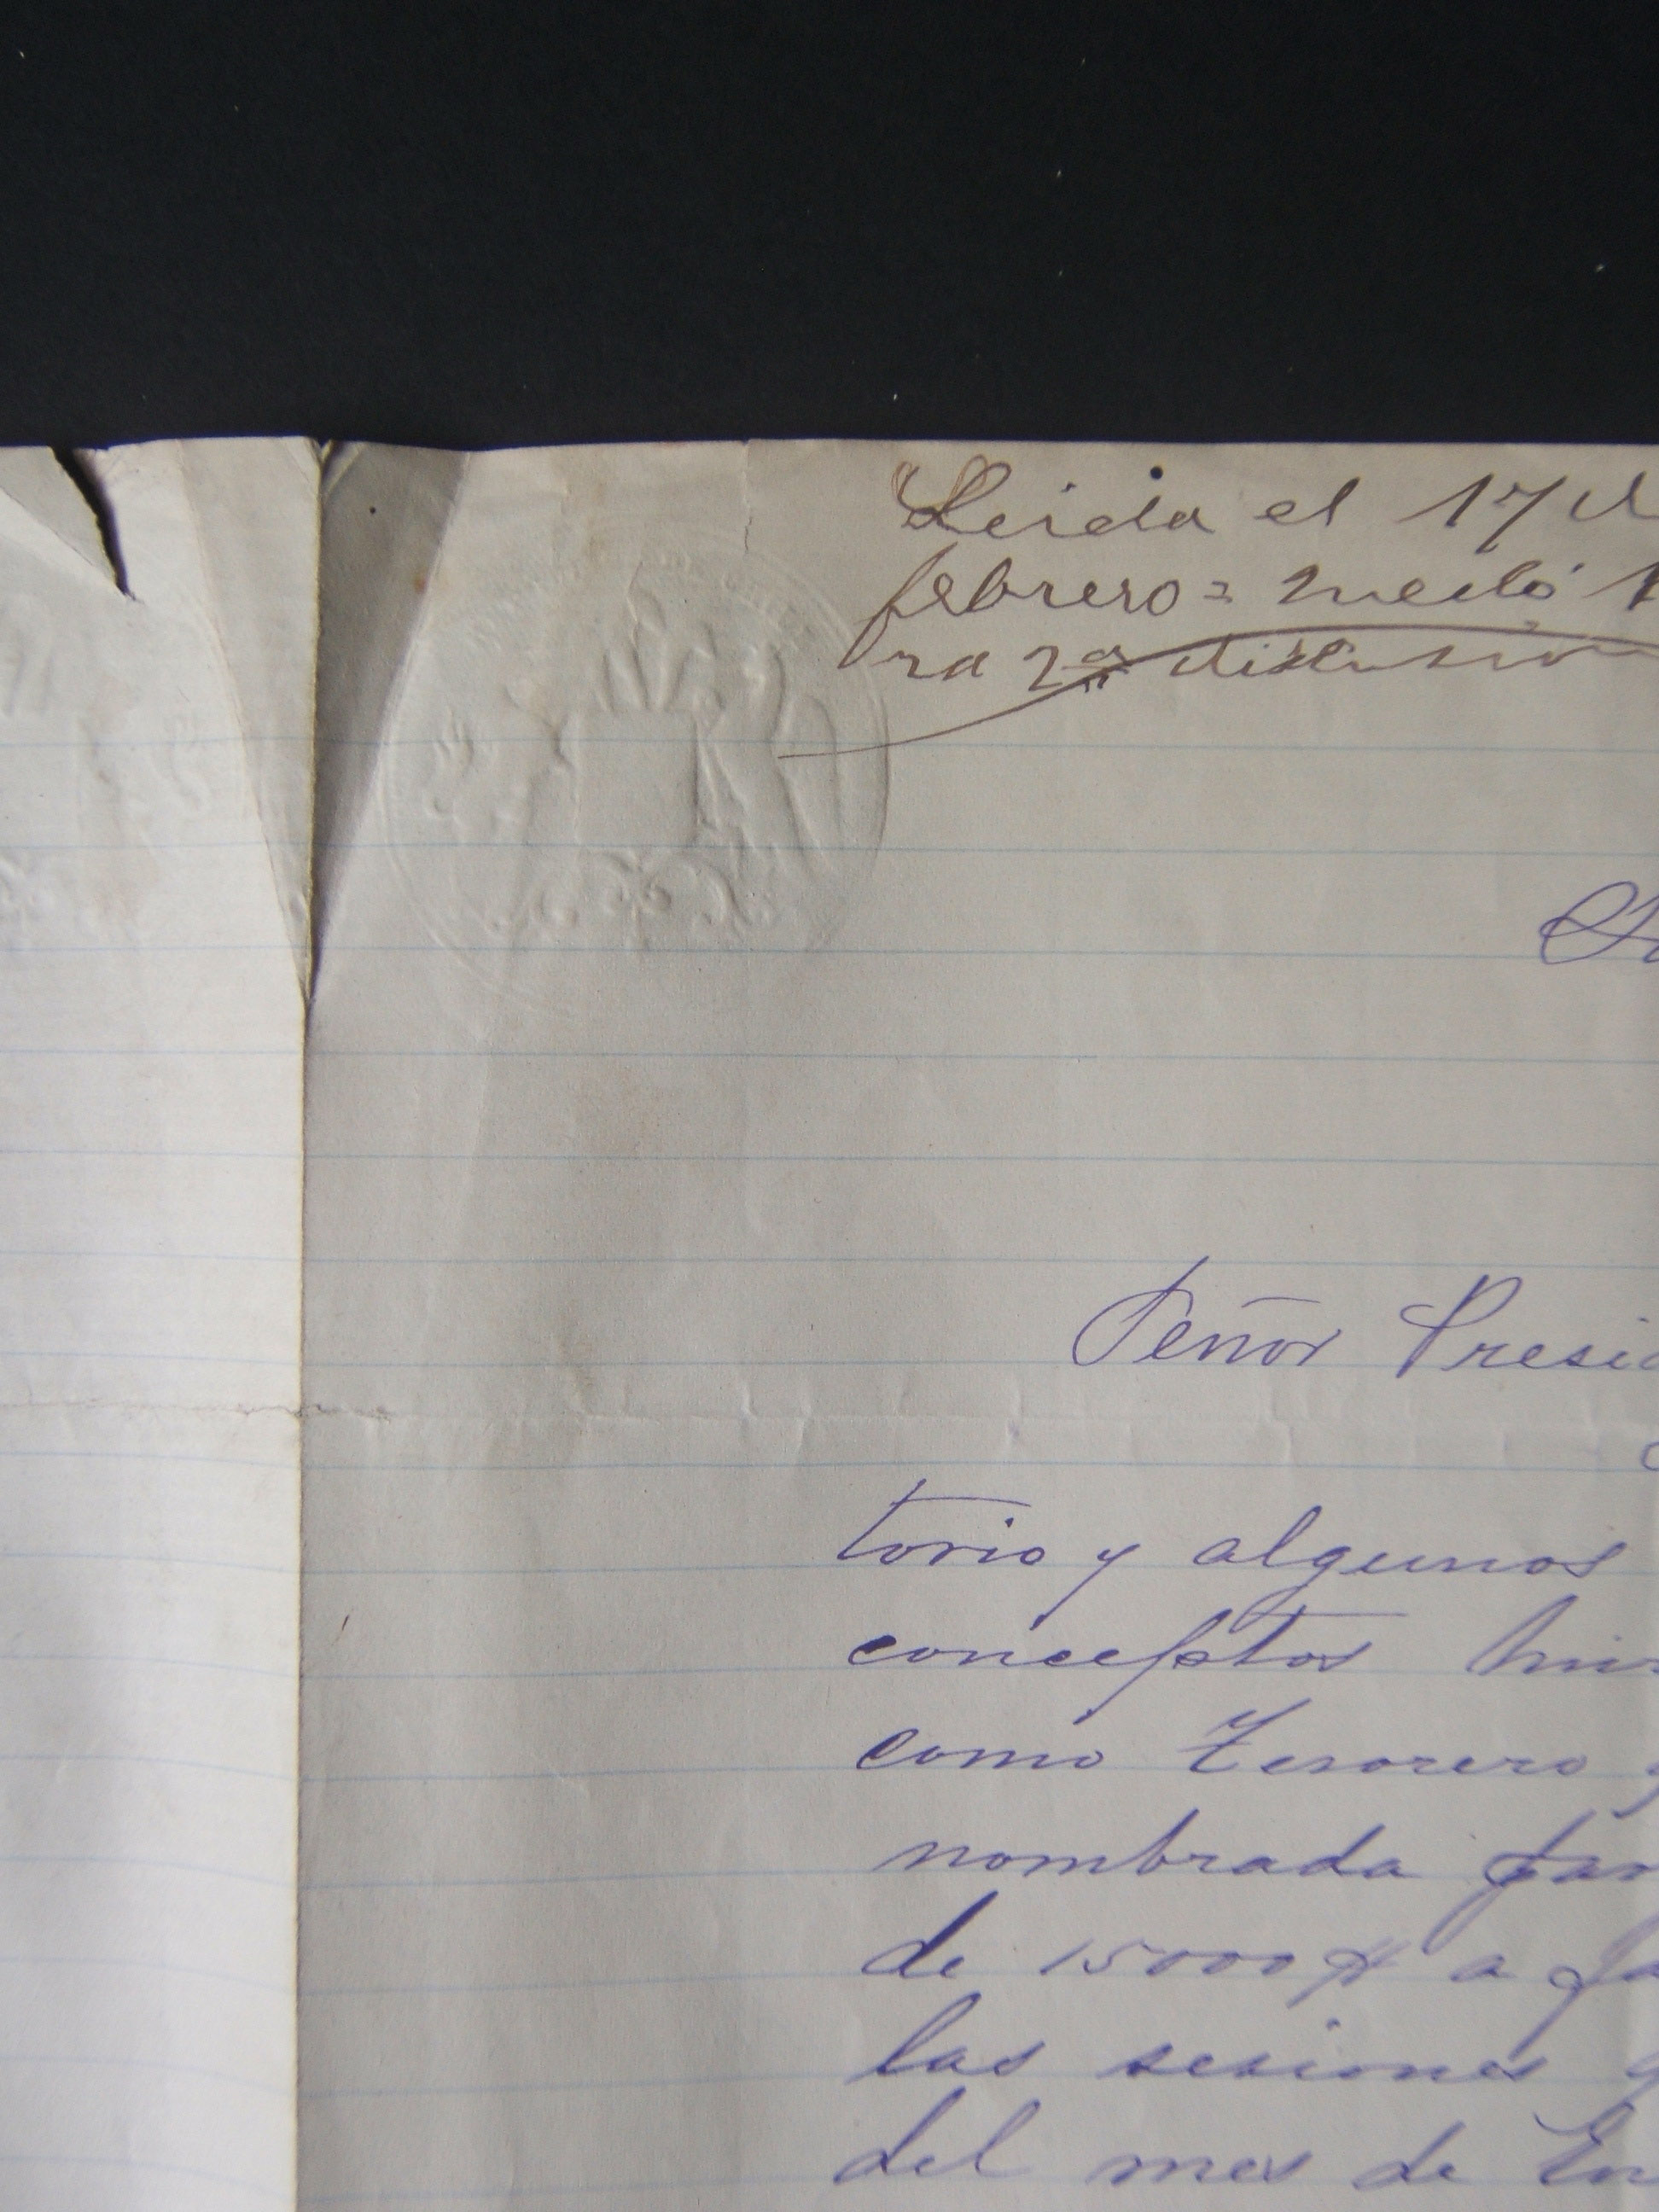 Leida el 17 d
febrero = quedó p
ra 2ª discusion
Señor Presid
torio y algunos
conceptos
como Tesorero y
nombrada par
de 15000 a fa
las sesiones
del mes de En